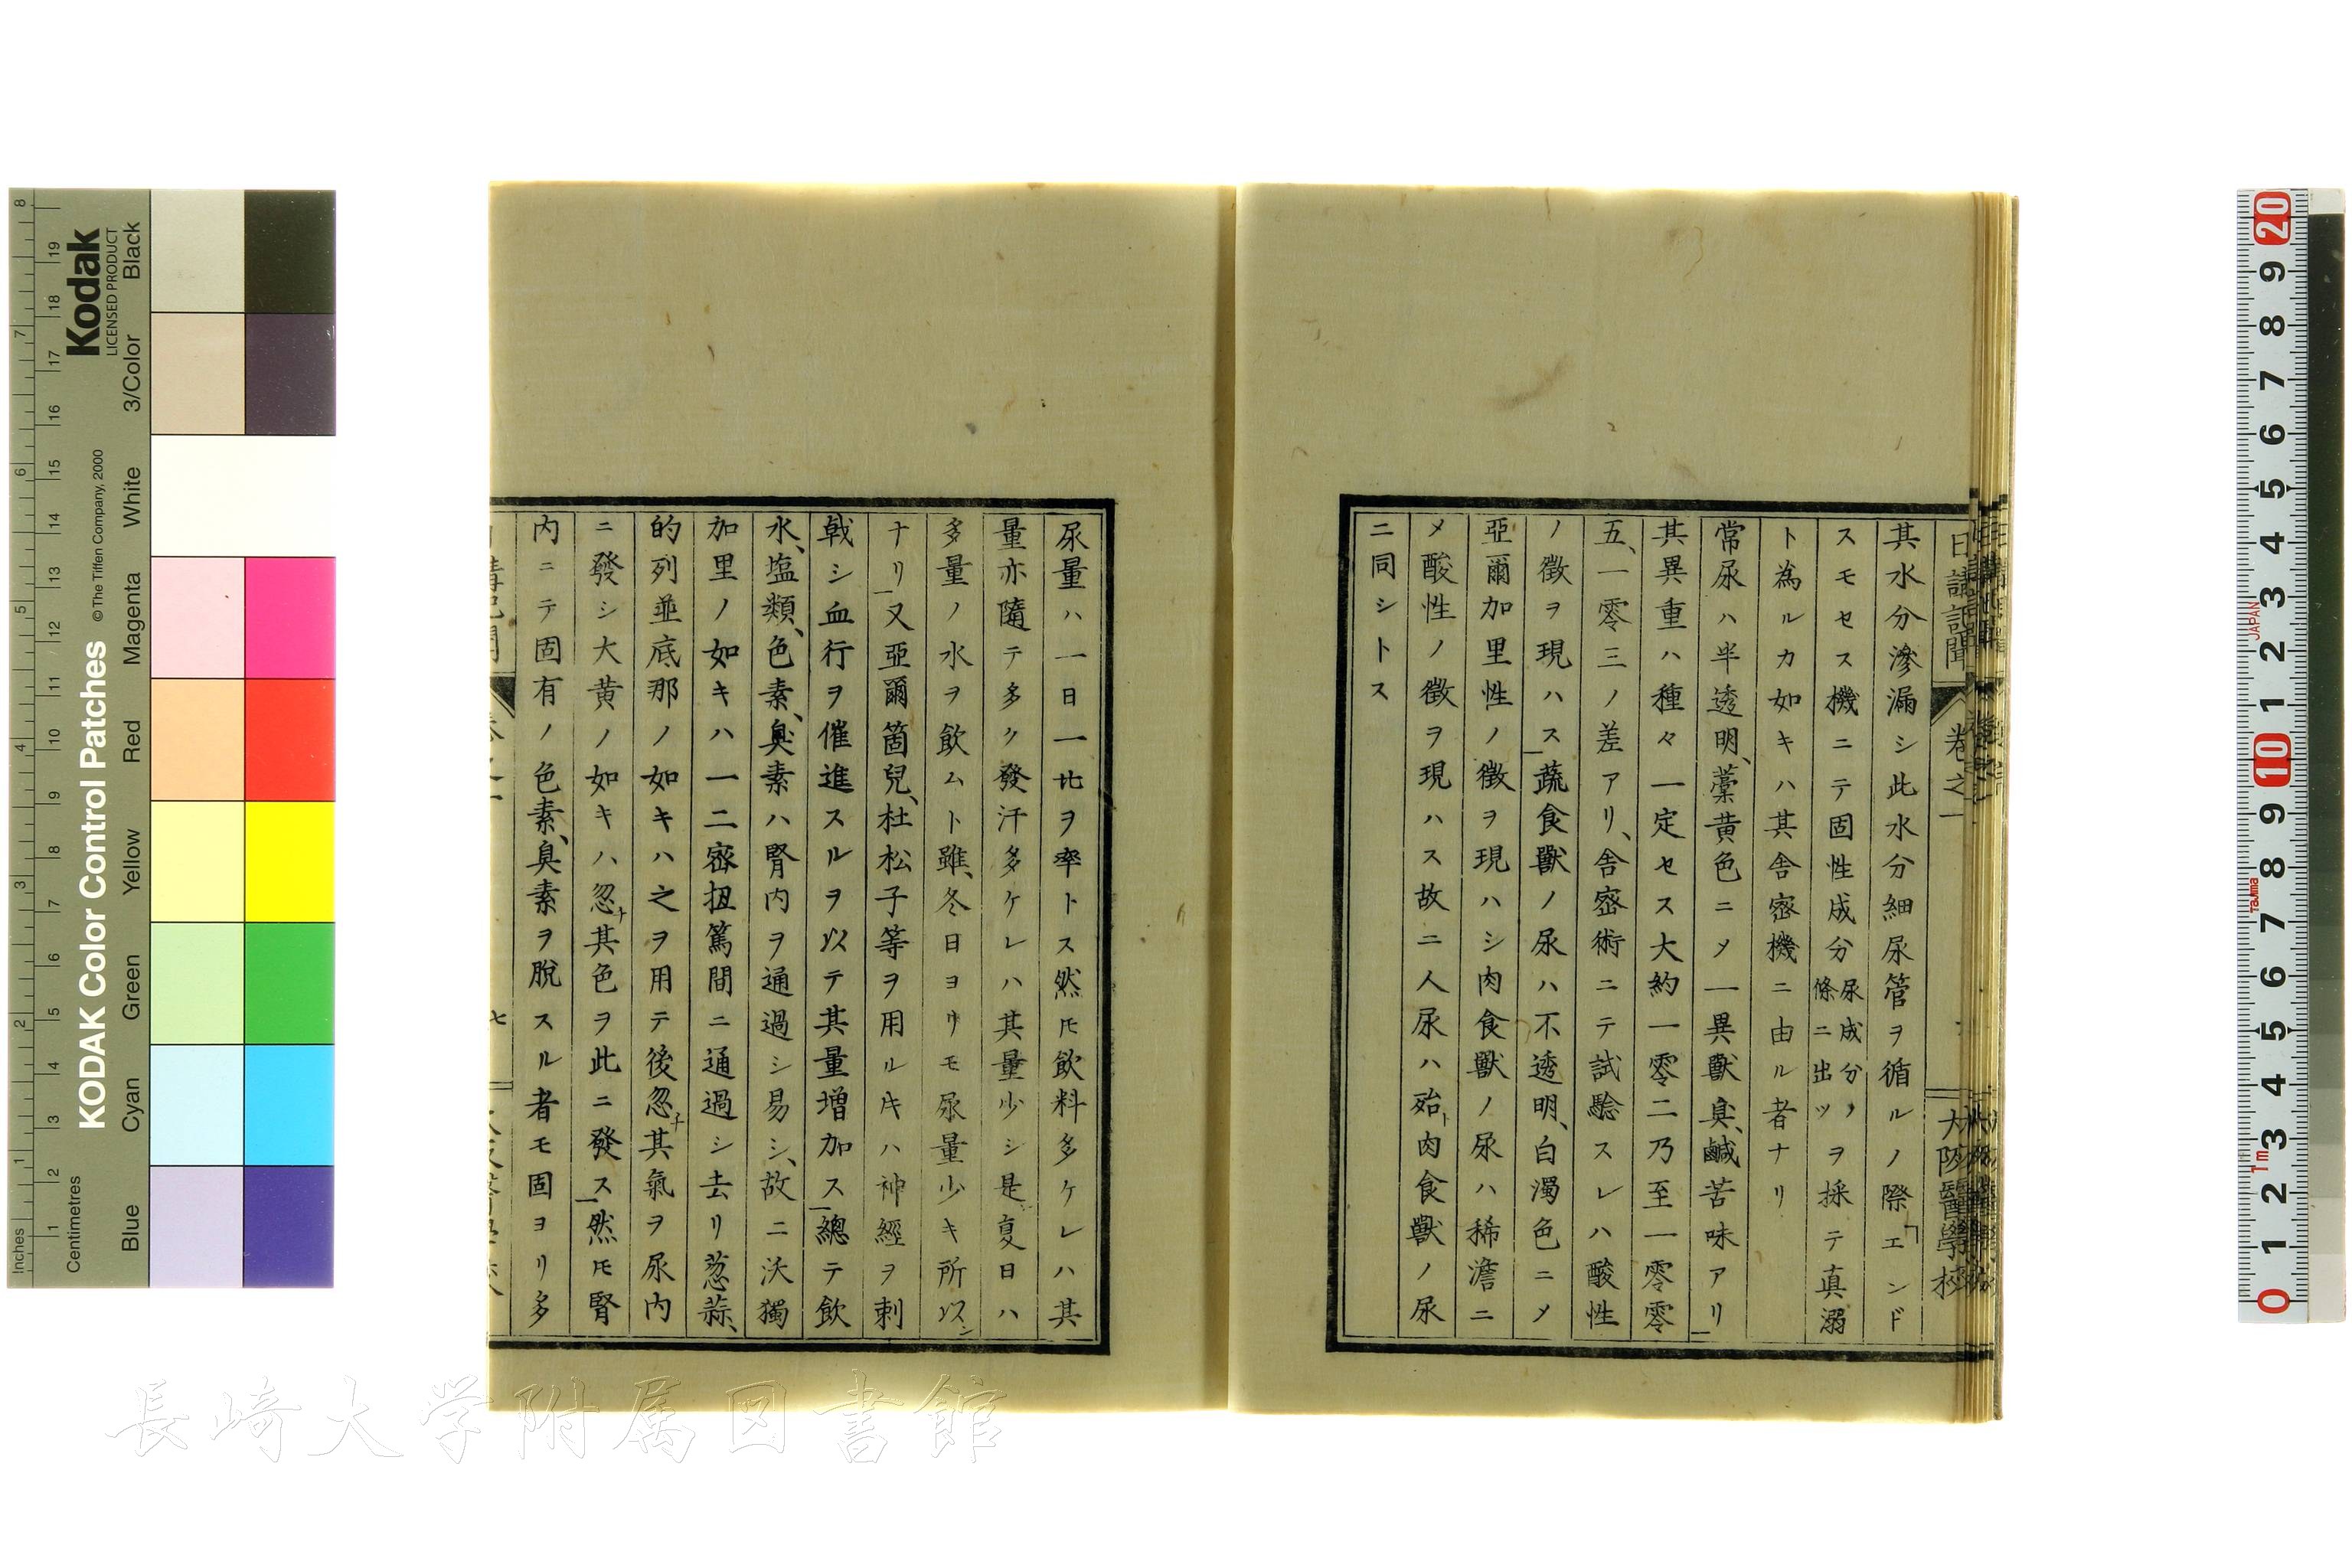 日講記聞
卷之一
大阪醫學校
其水分滲漏シ此水分細尿管ヲ循ルノ際「エンド
スモセス機ニテ固性成分尿成分ノ條ニ出ツヲ採テ真溺
ト為ルカ如キハ其舎密機ニ由ル者ナリ
常尿ハ半透明、藁黄色ニメ一異獸臭、鹹苦味アリ
其異重ハ種々一定セス大約一零二乃至一零零
五、一零三ノ差アリ、舎密術ニテ試驗スレハ酸性
ノ徴ヲ現ハス蔬食獸ノ尿ハ不透明、白濁色ニメ
亞爾加里性ノ徴ヲ現ハシ肉食獸ノ尿ハ稀澹ニ
メ酸性ノ徴ヲ現ハス故ニ人尿ハ殆ト肉食獸ノ尿
ニ同シトス
尿量ハ一日一比ヲ率トス然𪜈飲料多ケレハ其
量亦隨テ多ク發汗多ケレハ其量少シ是夏日ハ
多量ノ水ヲ飲ムト雖、冬日ヨリモ尿量少キ所以シ
ナリ又亞爾箇兒、杜松子等ヲ用ルキハ神經ヲ刺
戟シ血行ヲ催進スルヲ以テ其量増加ス總テ飲
水、塩類、色素、臭素ハ腎内ヲ通過シ易シ、故ニ沃獨
加里ノ如キハ一二密扭篤間ニ通過シ去リ葱蒜、
的列並底那ノ如キハ之ヲ用テ後忽チ其氣ヲ尿内
ニ發シ大黄ノ如キハ忽チ其色ヲ此ニ發ス然𪜈腎
内ニテ固有ノ色素、臭素ヲ脱スル者モ固ヨリ多
七
Kodak
LICENSED PRODUCT
KODAK Color Control Patches
© The Tiffen Company, 2000
Inches
Centimetres
Blue
Cyan
Green
Yellow
Red
Magenta
White
3/Color
Black
JAPAN
Tajima
1m
長崎大学附属図書館